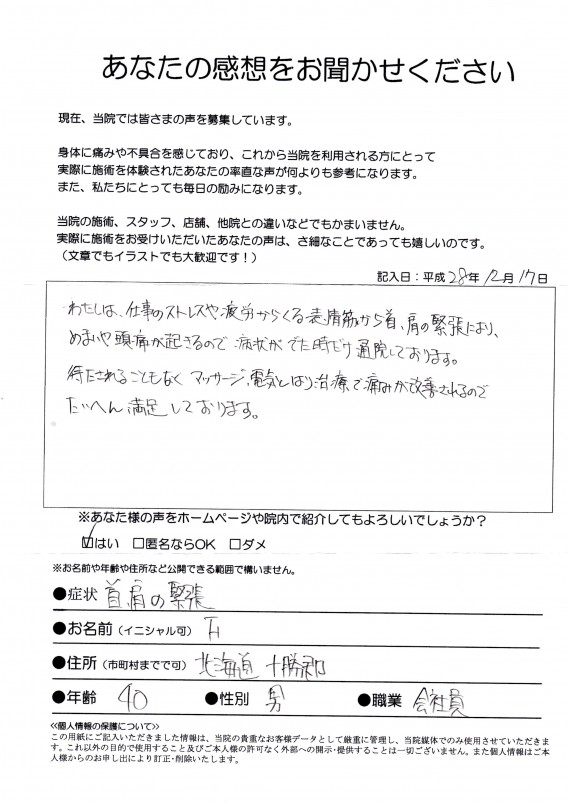 あなたの感想をお聞かせください
現在、当院では皆さまの声を募集しています。
身体に痛みや不具合を感じており、これから当院を利用される方にとって
実際に施術を体験されたあなたの率直な声が何よりも参考になります。
また、私たちにとっても毎日の励みになります。
当院の施術、スタッフ、店舗、他院との違いなどでもかまいません。
実際に施術をお受けいただいたあなたの声は、さ細なことであっても嬉しいのです。
（文章でもイラストでも大歓迎です！）
記入日：平成 28年 12月 17日
わたしは、仕事のストレスや疲労からくる表情筋から首、肩の緊張により、
めまいや頭痛が起きるので 病状がでた時だけ通院しております。
待たされることもなく マッサージ、電気とはり治療で痛みが改善されるので
たいへん満足しております。
※あなた様の声をホームページや院内で紹介してもよろしいでしょうか？
☑はい □匿名ならOK □ダメ
※お名前や年齢や住所など公開できる範囲で構いません。
●症状 首肩の緊張
●お名前（イニシャル可）
●住所（市町村までで可） 北海道 十勝郡
●年齢 40 ●性別 男 ●職業 会社員
≪個人情報の保護について≫
この用紙にご記入いただきました情報は、当院の貴重なお客様データとして厳重に管理し、当院媒体でのみ使用させていただきま
す。これ以外の目的で使用すること及びご本人様の許可なく外部への開示・提供することは一切ございません。また個人情報はご本
人様からのお申し出により訂正・削除いたします。